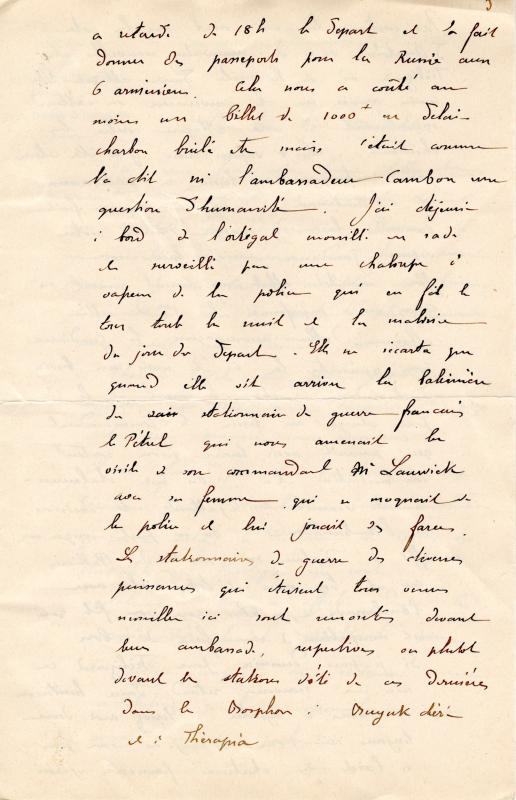 5
a retardé de 18h le départ et l'a fait
donner des passeports pour la Russie aux
6 arméniens. Cela nous a coûté au
moins un billet de 1000 + en délai
charbon brûlé etc mais c'était comme
l'a dit mr l'ambassadeur Cambon une
question d'humanité. J'ai déjeuné
à bord de l'ortégal mouillé en rade
et surveillé par une chaloupe à
vapeur de la police qui en fit le
tour tout la nuit et la matinée
du jour du départ. Elle ne s'écarta que
quand elle vit arriver la baleinière
du stationnaire de guerre français
le Pétrel qui nous amenait la
visite de son commandant Mr Lauwick
avec sa femme qui se moquait de
la police et lui jouait des farces.
Les stationnaires de guerre des diverses
puissances qui étaient tous venus
mouiller ici sont remontés devant
leurs ambassades respectives ou plutôt
devant les stations d'été de ces dernières
dans le Bosphore à Buyuk déré
et à Thérapia